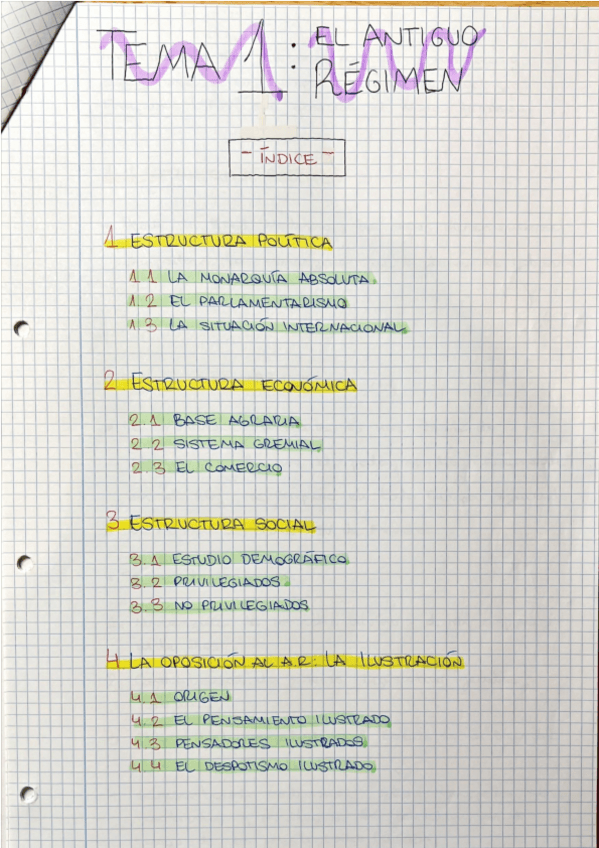 TEMA 1: EL ANTIGUO
RÉGIMEN
- ÍNDICE -
1 ESTRUCTURA POLÍTICA
1 1 LA MONARQUÍA ABSOLUTA.
1 2 EL PARLAMENTARISMO
1 3 LA SITUACIÓN INTERNACIONAL.
2 ESTRUCTURA ECONÓMICA
2.1 BASE AGRARIA
2 2 SISTEMA GREMIAL.
2.3 EL COMERCIO
3 ESTRUCTURA SOCIAL
3.1 ESTUDIO DEMOGRÁFICO.
3.2 PRIVILEGIADOS.
3.3 NO PRIVILEGIADOS
4 LA OPOSICIÓN AL A.R: LA ILUSTRACIÓN
4.1 ORIGEN
4.2 EL PENSAMIENTO ILUSTRADO
4 3 PENSADORES ILUSTRADOS.
4 4 EL DESPOTISMO ILUSTRADO.